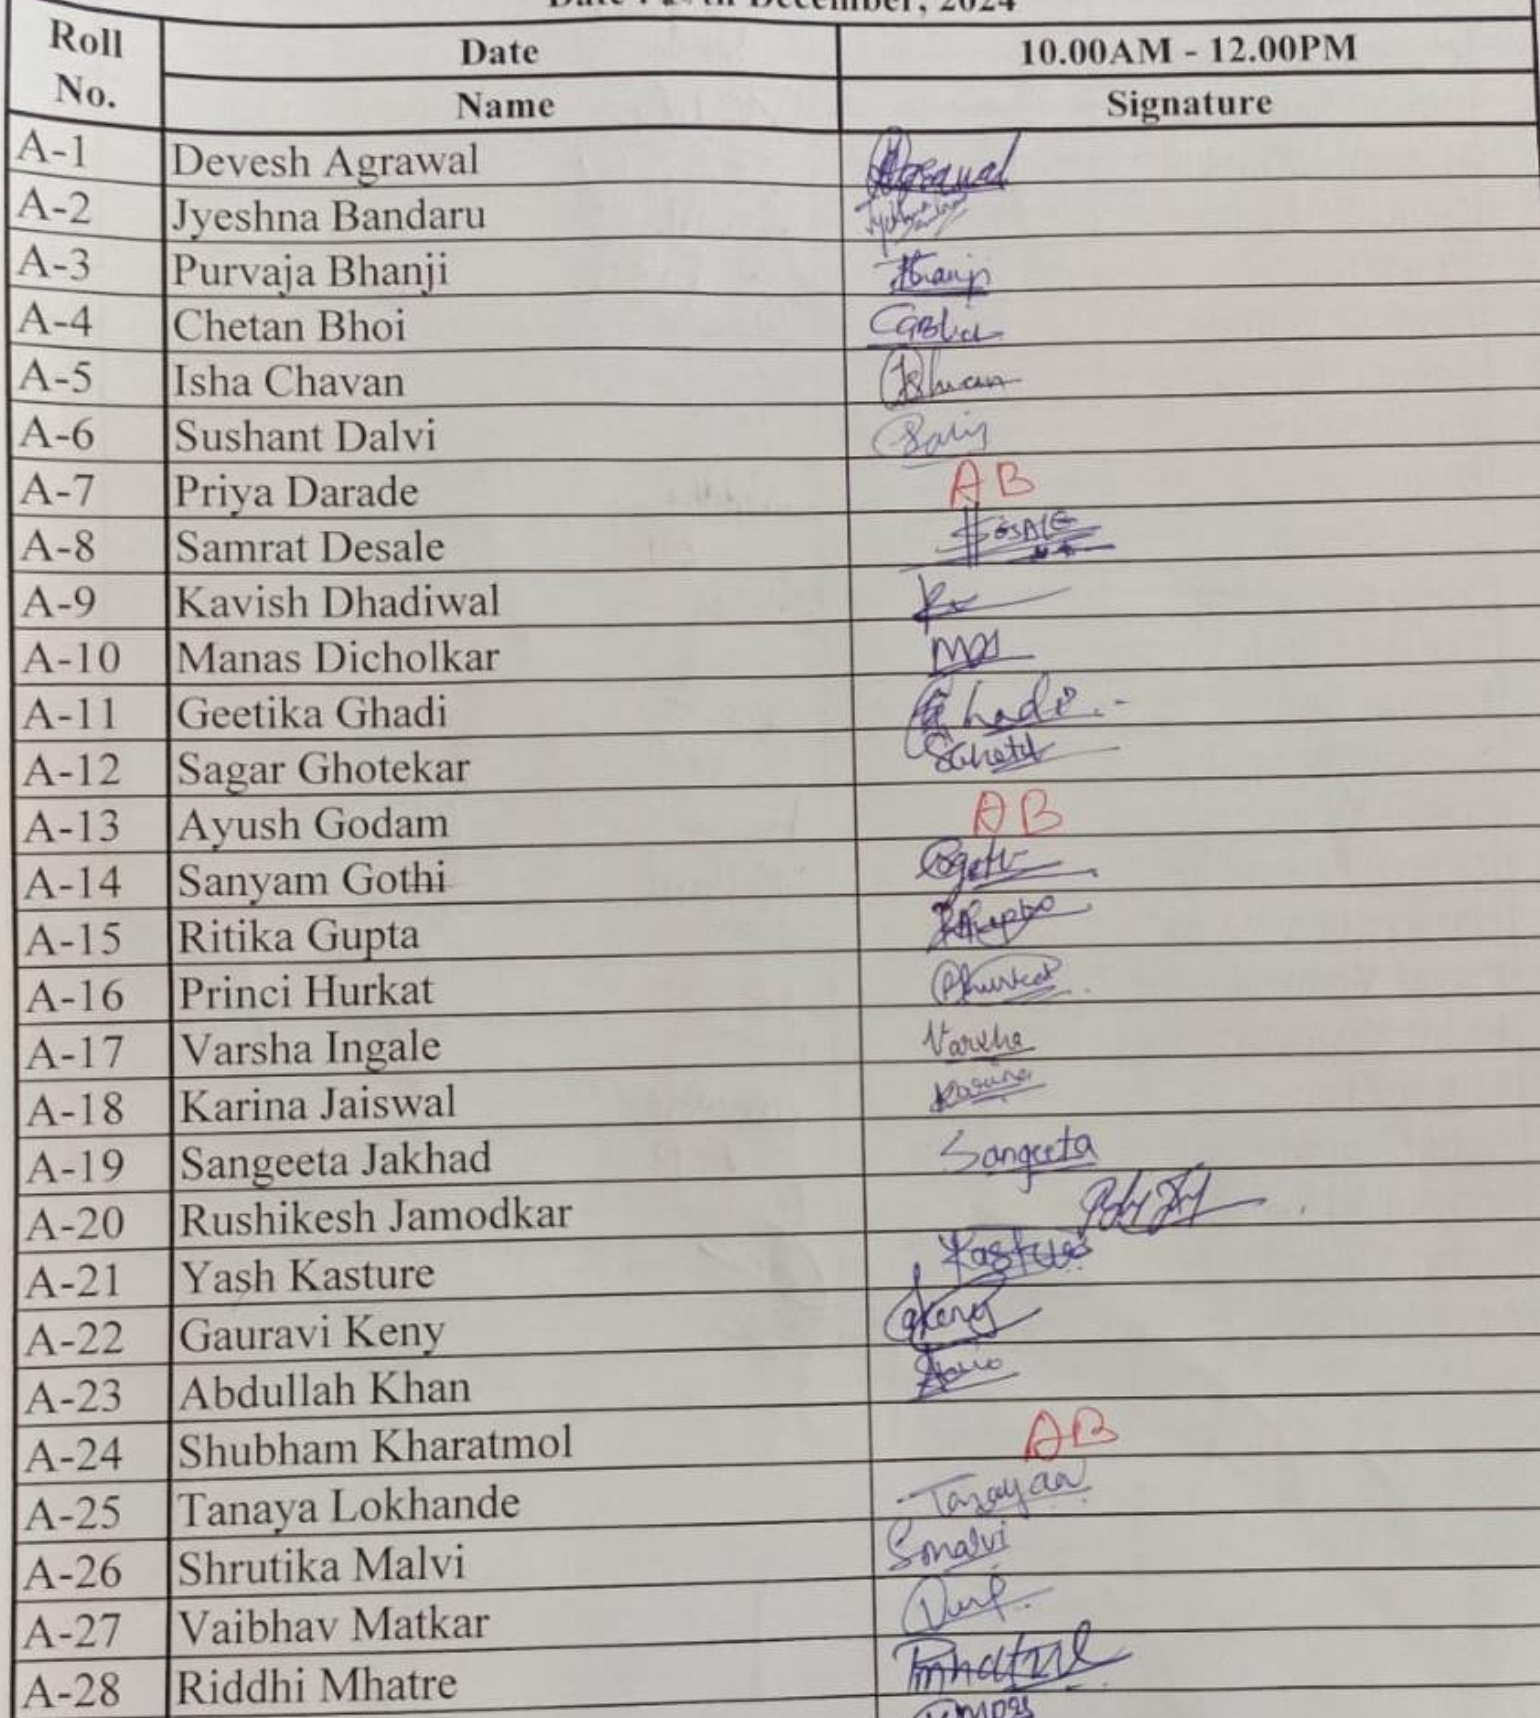 December, 2024
Roll No. Date 10.00AM - 12.00PM
Name Signature
A-1 Devesh Agrawal Agrawal
A-2 Jyeshna Bandaru
A-3 Purvaja Bhanji Bhanji
A-4 Chetan Bhoi
A-5 Isha Chavan
A-6 Sushant Dalvi
A-7 Priya Darade AB
A-8 Samrat Desale DESALE
A-9 Kavish Dhadiwal
A-10 Manas Dicholkar
A-11 Geetika Ghadi Ghadi
A-12 Sagar Ghotekar
A-13 Ayush Godam AB
A-14 Sanyam Gothi
A-15 Ritika Gupta
A-16 Princi Hurkat Phurkat
A-17 Varsha Ingale Varsha
A-18 Karina Jaiswal Karina
A-19 Sangeeta Jakhad Sangeeta
A-20 Rushikesh Jamodkar
A-21 Yash Kasture Kasture
A-22 Gauravi Keny GKeny
A-23 Abdullah Khan
A-24 Shubham Kharatmol AB
A-25 Tanaya Lokhande
A-26 Shrutika Malvi Smalvi
A-27 Vaibhav Matkar
A-28 Riddhi Mhatre Rmhatre